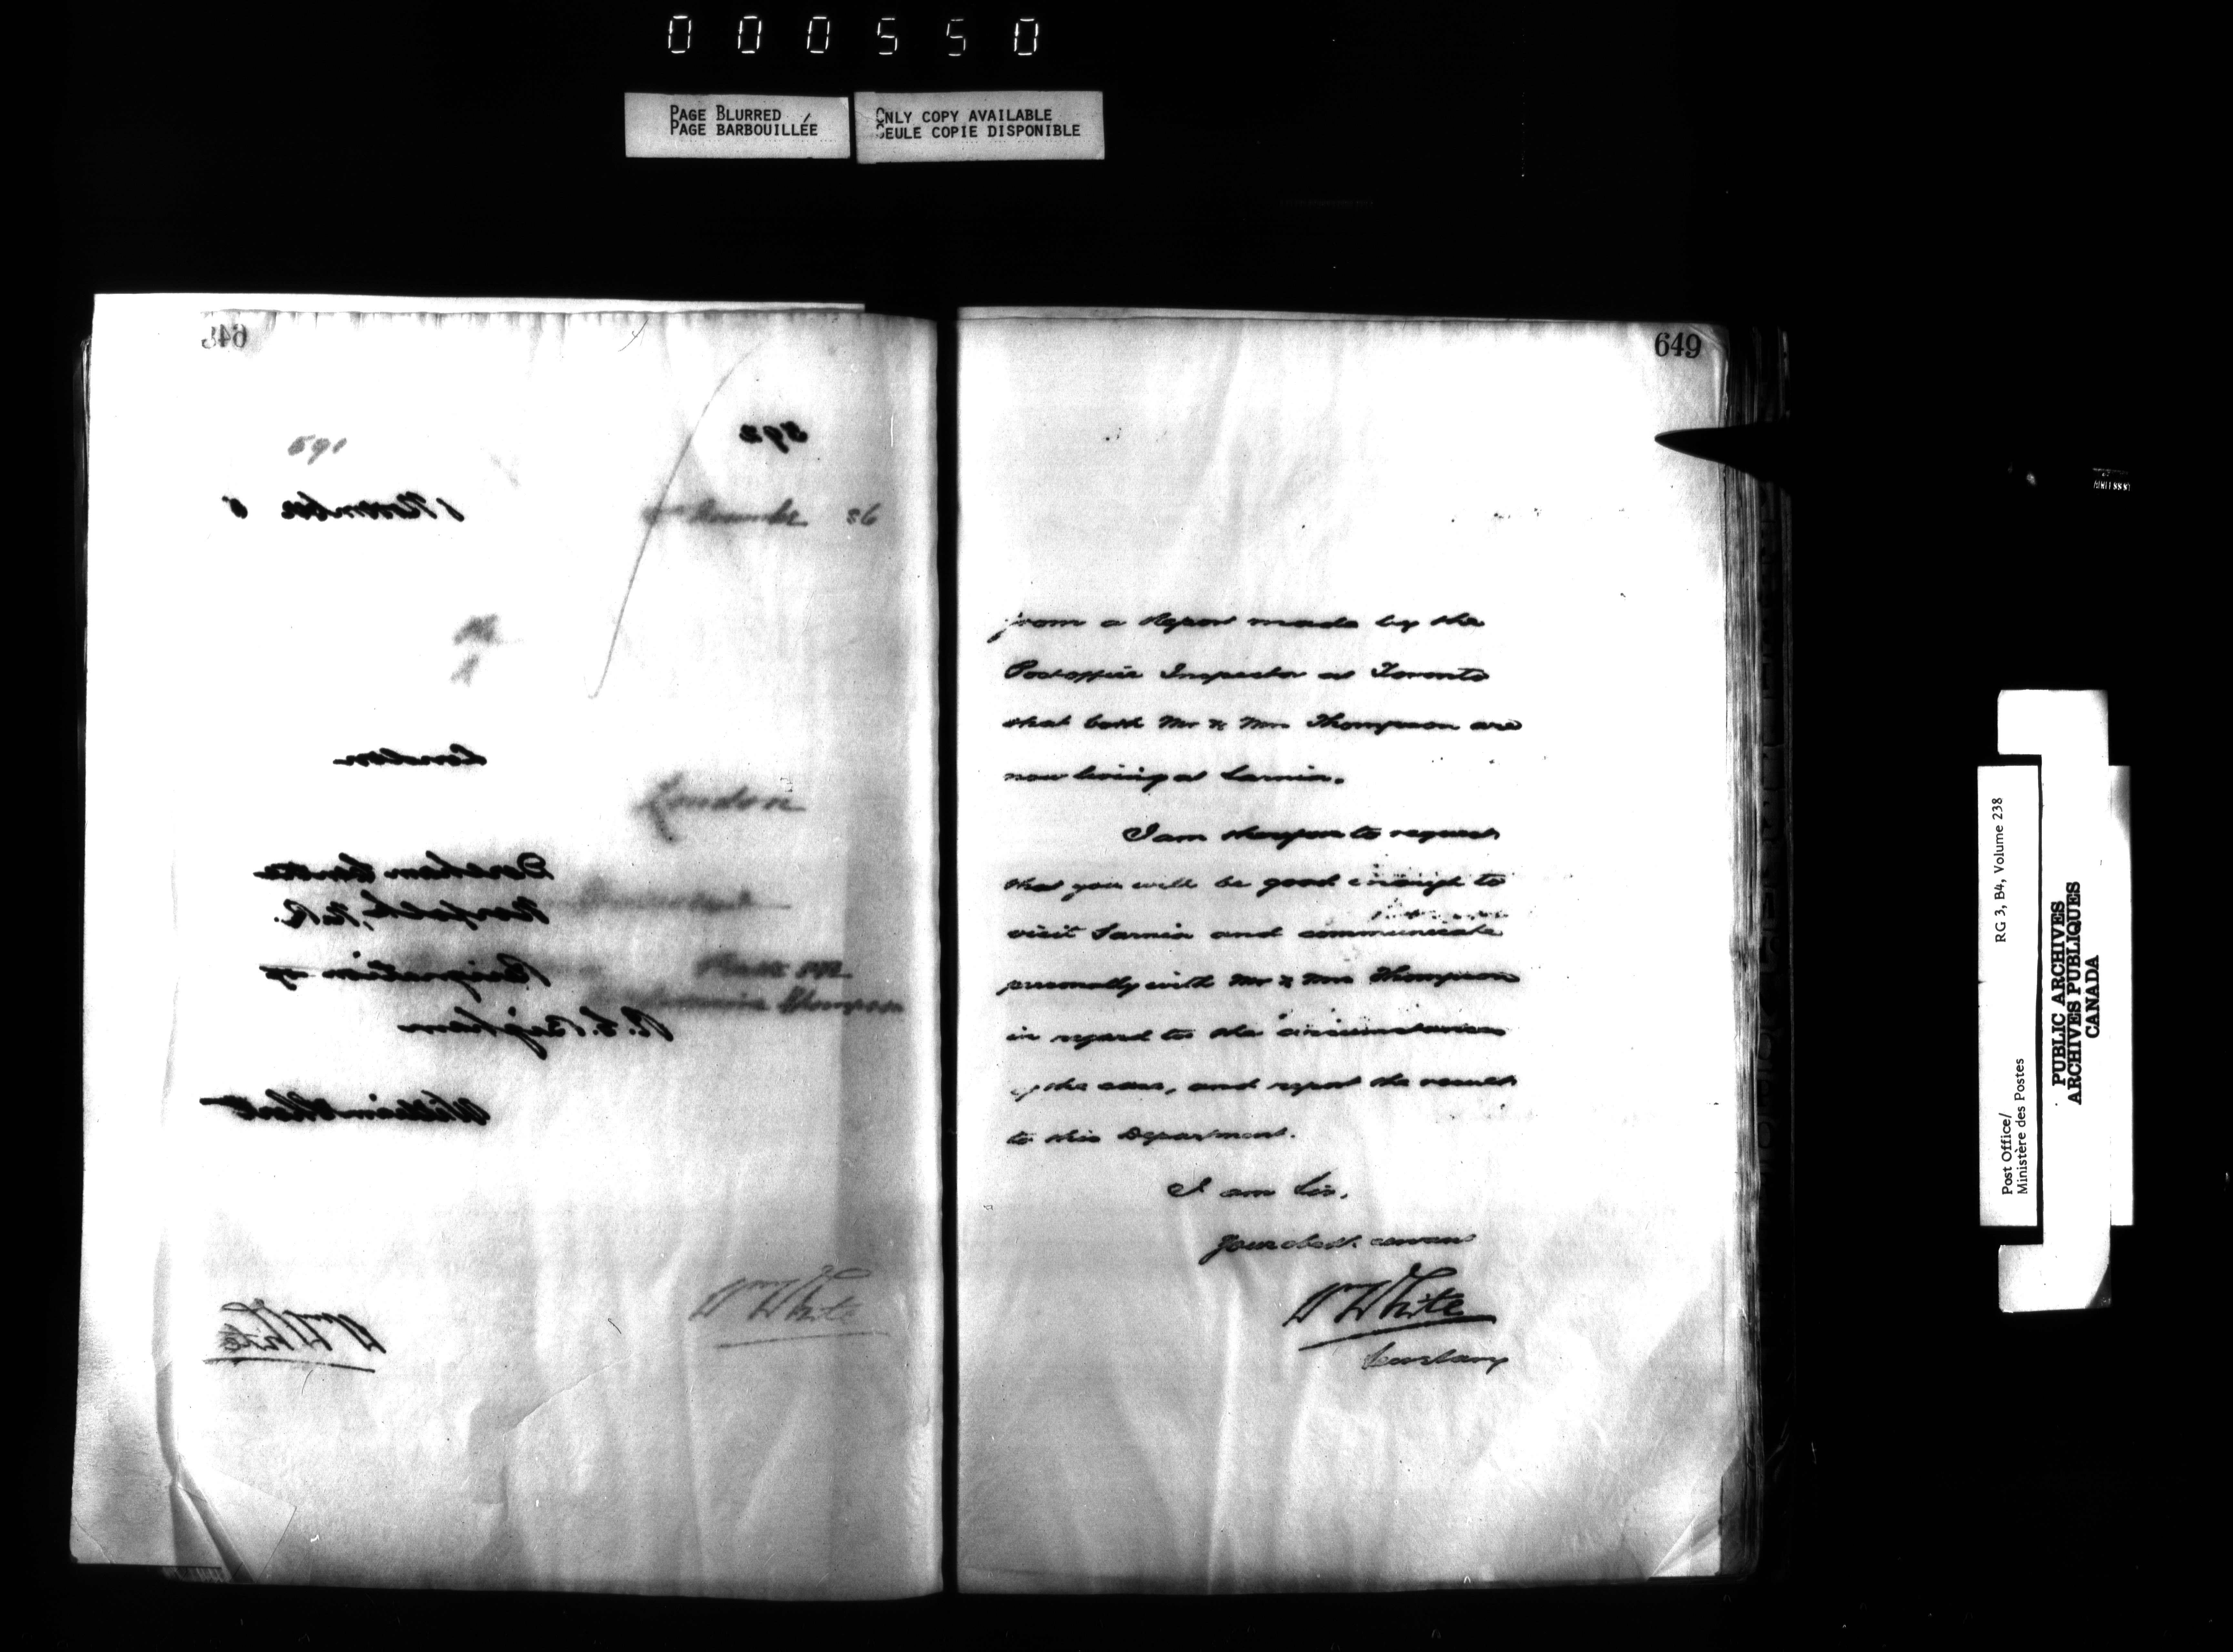 000550
PAGE BLURRED
PAGE BARBOUILLÉE
ONLY COPY AVAILABLE
SEULE COPIE DISPONIBLE
648
591
592
November 5
86
London
London
Dereham Centre
Norfolk, N.R.
Resignation of
Thompson
William Short
Wm White
Wm White
649
from a Report made by the
Postoffice Inspector at Toronto
that both Mr & Mrs Thompson are
now living at Sarnia.
I am therefore to request
that you will be good enough to
visit Sarnia and communicate
personally with Mr & Mrs Thompson
in regard to the circumstances
of the case, and report the result
to this Department.
I am Sir,
Your obedt. servant
Wm White
Secretary
Post Office/
Ministère des Postes
RG 3, B4, Volume 238
PUBLIC ARCHIVES
ARCHIVES PUBLIQUES
CANADA